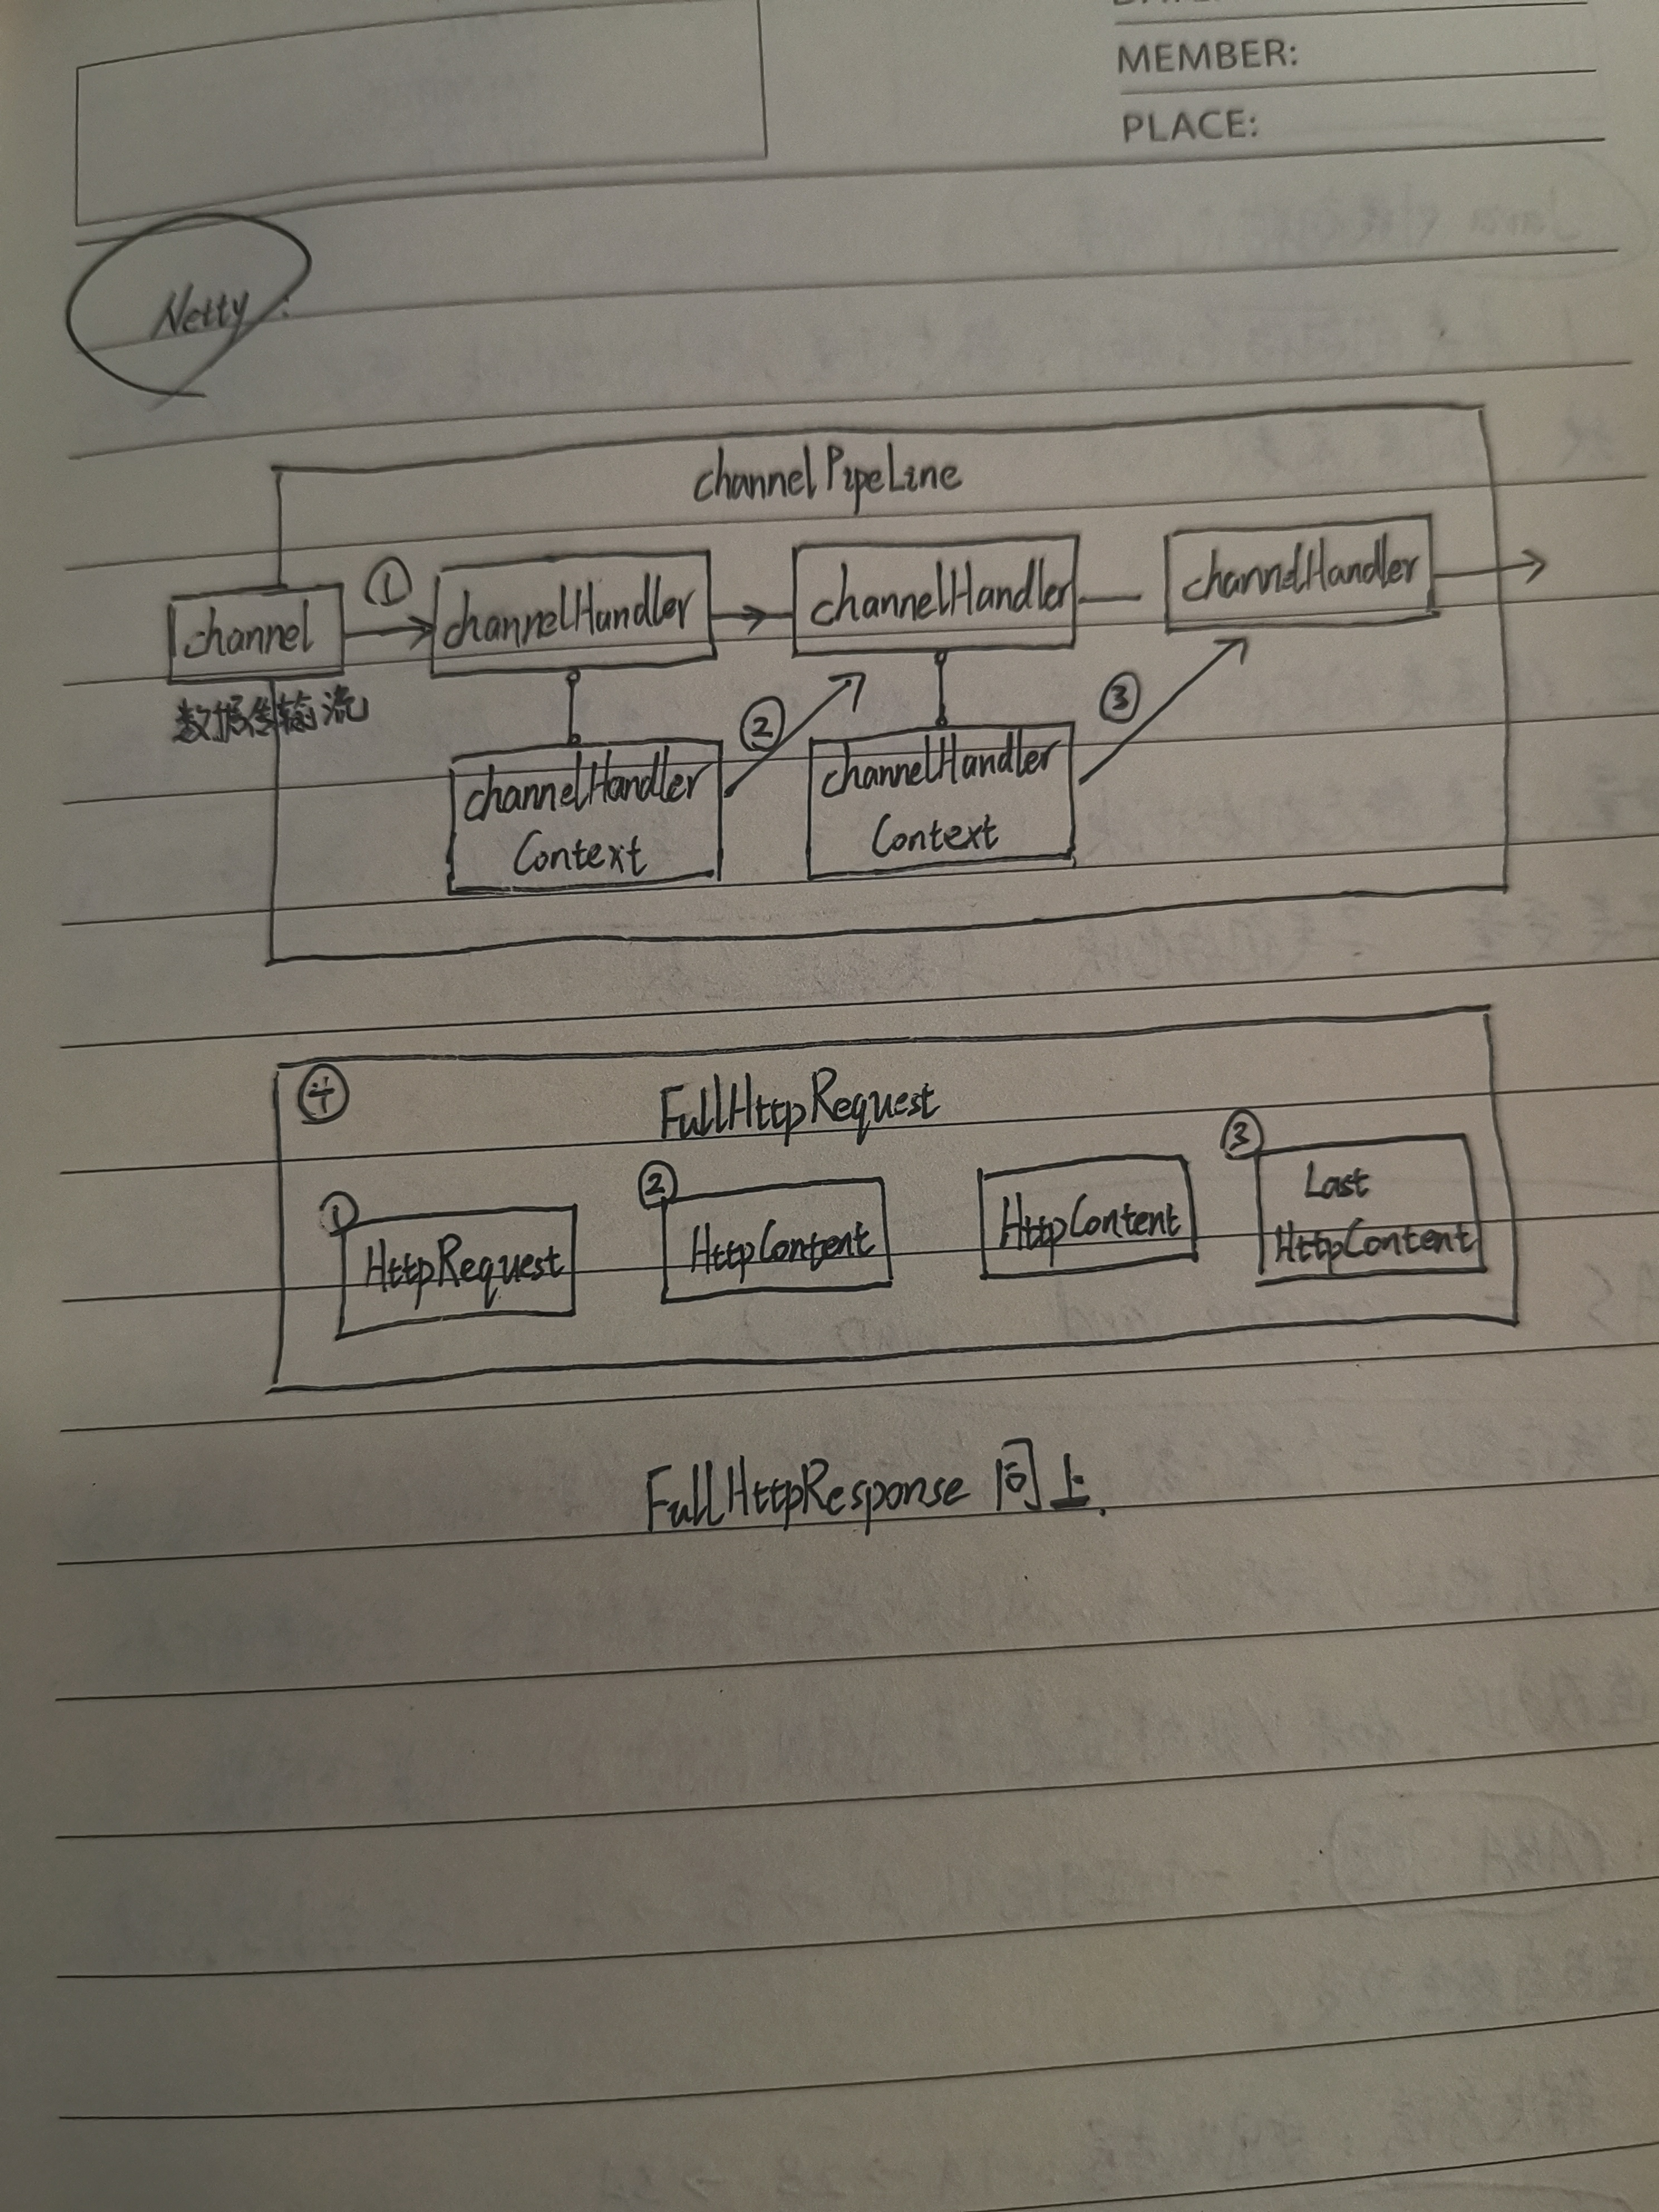 MEMBER:
PLACE:
Netty:
channelPipeLine
① ② ③
channel channelHandler channelHandler channelHandler
数据传输流
channelHandler
Context
channelHandler
Context
④ FullHttpRequest
① HttpRequest
② HttpContent
HttpContent
③ Last
HttpContent
FullHttpResponse 同上.